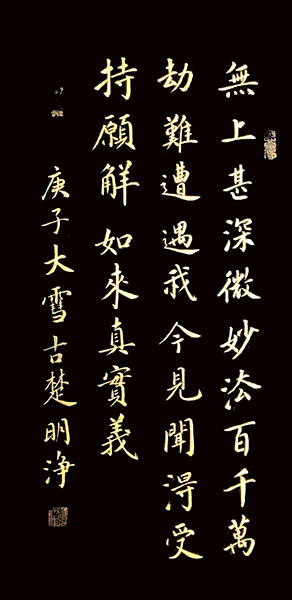 無上甚深微妙法百千萬
劫難遭遇我今見聞淂受
持願解如來真實義
庚子大雪古楚明浄